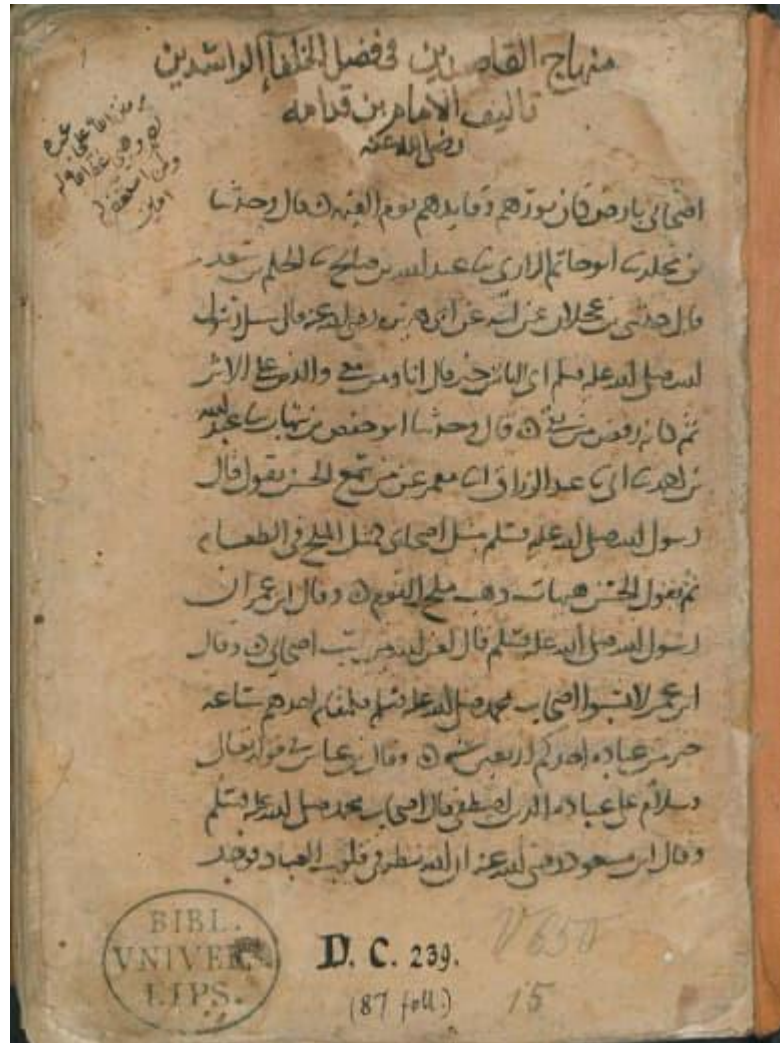 منهاج القاصدين في فضل الخلفا الراشدين
تاليف الامام بن قدامه
رضي الله عنه
اصحابي بارض كان نورهم وقايدهم يوم القيمه قال وحدثنا
بن مخلد ابو حاتم الرازي عبد الله بن صالح
قال بن عجلان عن عن ابي هريره رضي الله عنه قال سيل رسول
الله صلي الله عليه وسلم اي الناس خير قال انا ومن معي والذين علي الاثر
ثم كانه رفض من بقي قال وحدثنا ابو حفص بن عبد الله
بن احمد ابي عبد الرزاق معمر عن من سمع الحسن يقول قال
رسول الله صلي الله عليه وسلم مثل اصحابي كمثل الملح في الطعام
ثم يقول الحسن هيهات ذهب ملح القوم وقال ابن عمر ان
رسول الله صلي الله عليه وسلم قال لعن الله من سب اصحابي وقال
ابن عمر لا تسبوا اصحاب محمد صلي الله عليه وسلم فلمقام احدهم ساعه
خير من عباده احدكم اربعين سنه وقال بن عباس في قوله تعالي
وسلام علي عباده الذين اصطفي قال اصحاب محمد صلي الله عليه وسلم
وقال ابن مسعود رضي الله عنه ان الله نظر في قلوب العباد فوجد
BIBL.
VNIVER
LIPS.
D. C. 239.
(87 foll.)
15